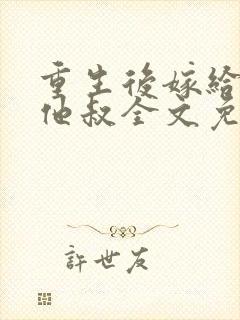 重生後嫁給
他叔全文免
許世友